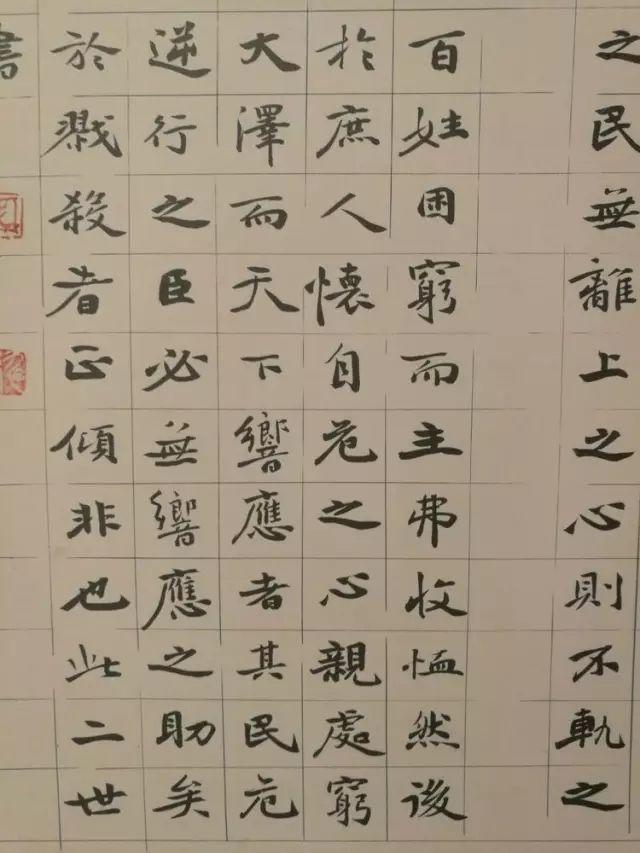 之民無離上之心則不軌之
百姓困窮而主弗收恤然後
扵庶人懷自危之心親處窮
大澤而天下響應者其民危
逆行之臣必無響應之助矣
於戮殺者正傾非也此二世
書